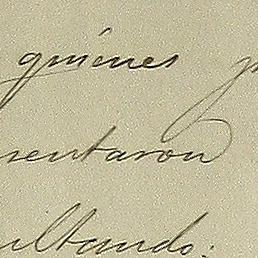 quienes
mentaron
ultando: